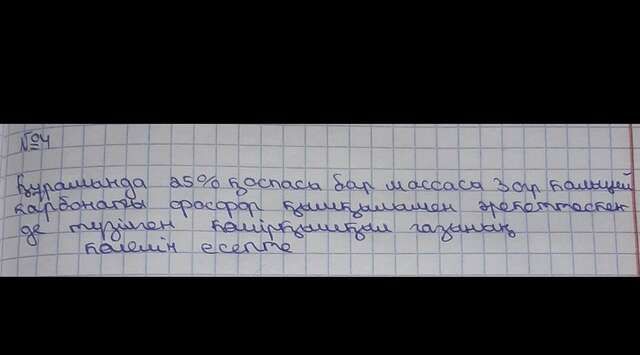 №4
Құрамында 25% қоспасы бар массасы 30гр кальций
карбонаты фосфор қышқылымен әрекеттескен
де түзілген көмірқышқыл газының
көлемін есепте